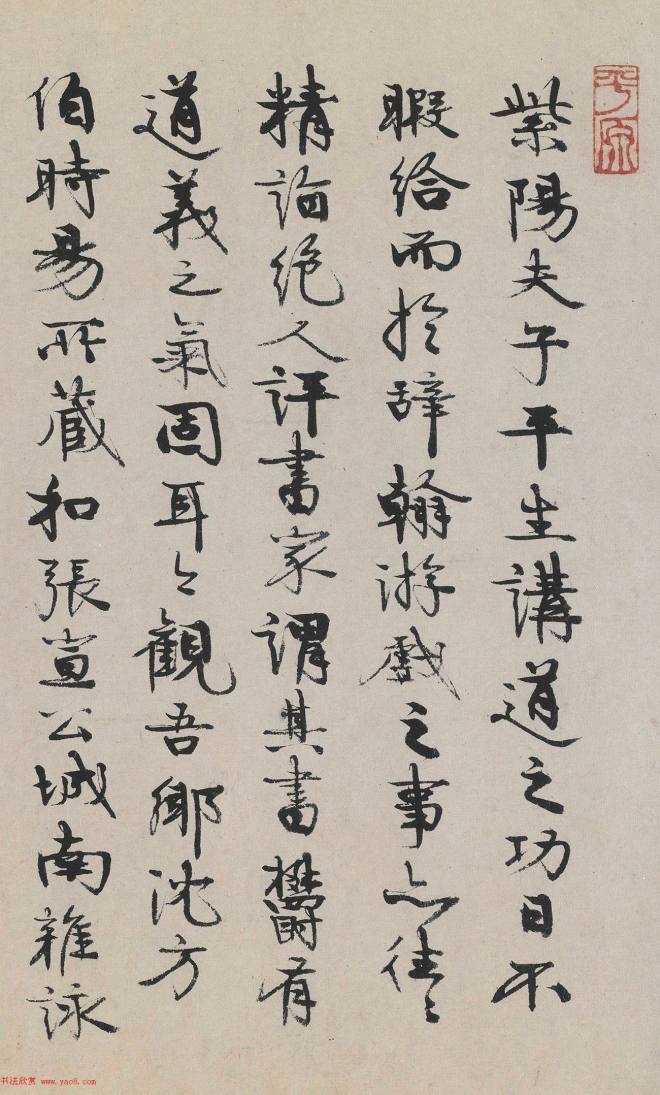 紫陽夫子平生講道之功日不
暇給而於辭翰游戲之事亦往〻
精詣絕人評書家謂其書鬱有
道義之氣固耳〻觀吾鄉沈方
伯時昜所藏和張宣公城南雜詠
平原
书法欣赏 www.yac8.com